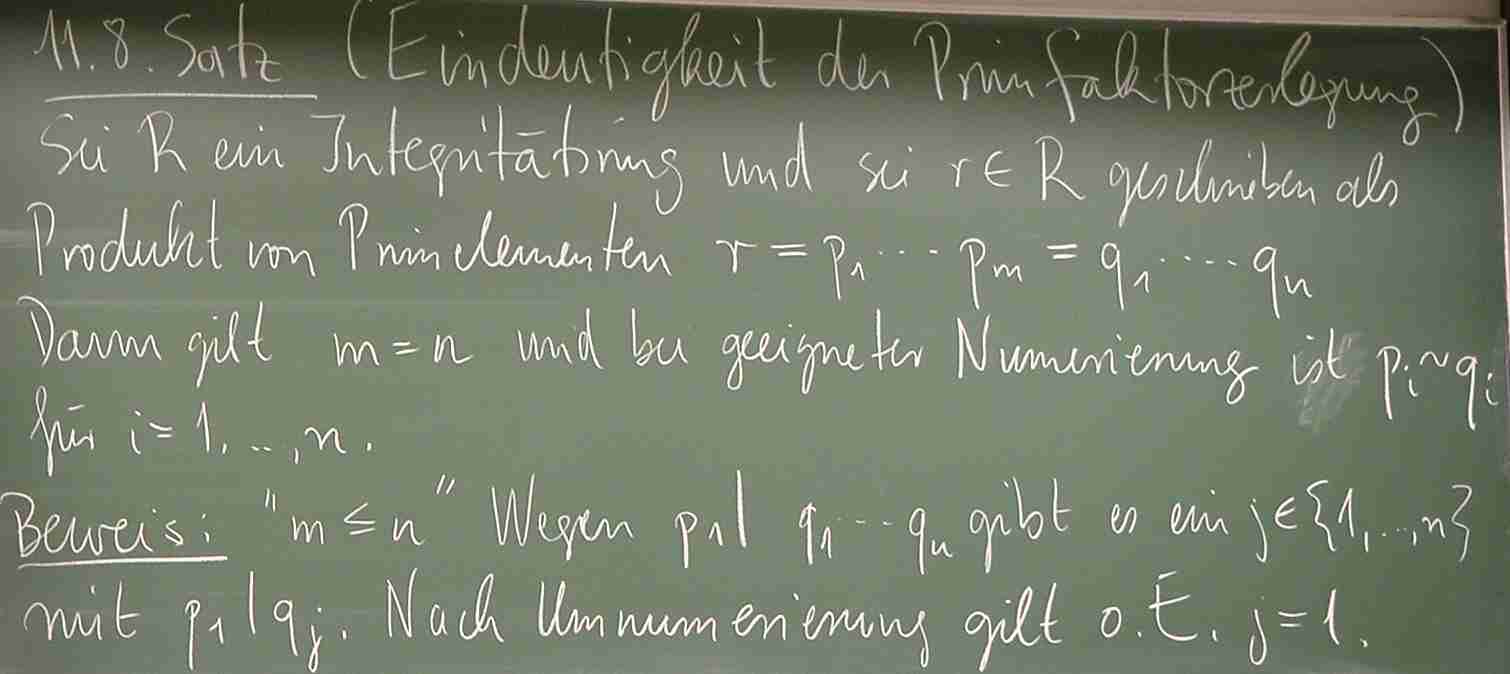 11.8. Satz (Eindeutigkeit der Primfaktorzerlegung)
Sei R ein Integritätsring und sei r ∈ R geschrieben als
Produkt von Primelementen r = p₁ ··· pₘ = q₁ ···· qₙ
Dann gilt m = n und bei geeigneter Numerierung ist pᵢ ~ qᵢ
für i = 1, .., n.
Beweis: "m ≤ n" Wegen p₁ | q₁ ··· qₙ gibt es ein j ∈ {1, .., n}
mit p₁ | qⱼ. Nach Umnumerierung gilt o.E. j = 1.